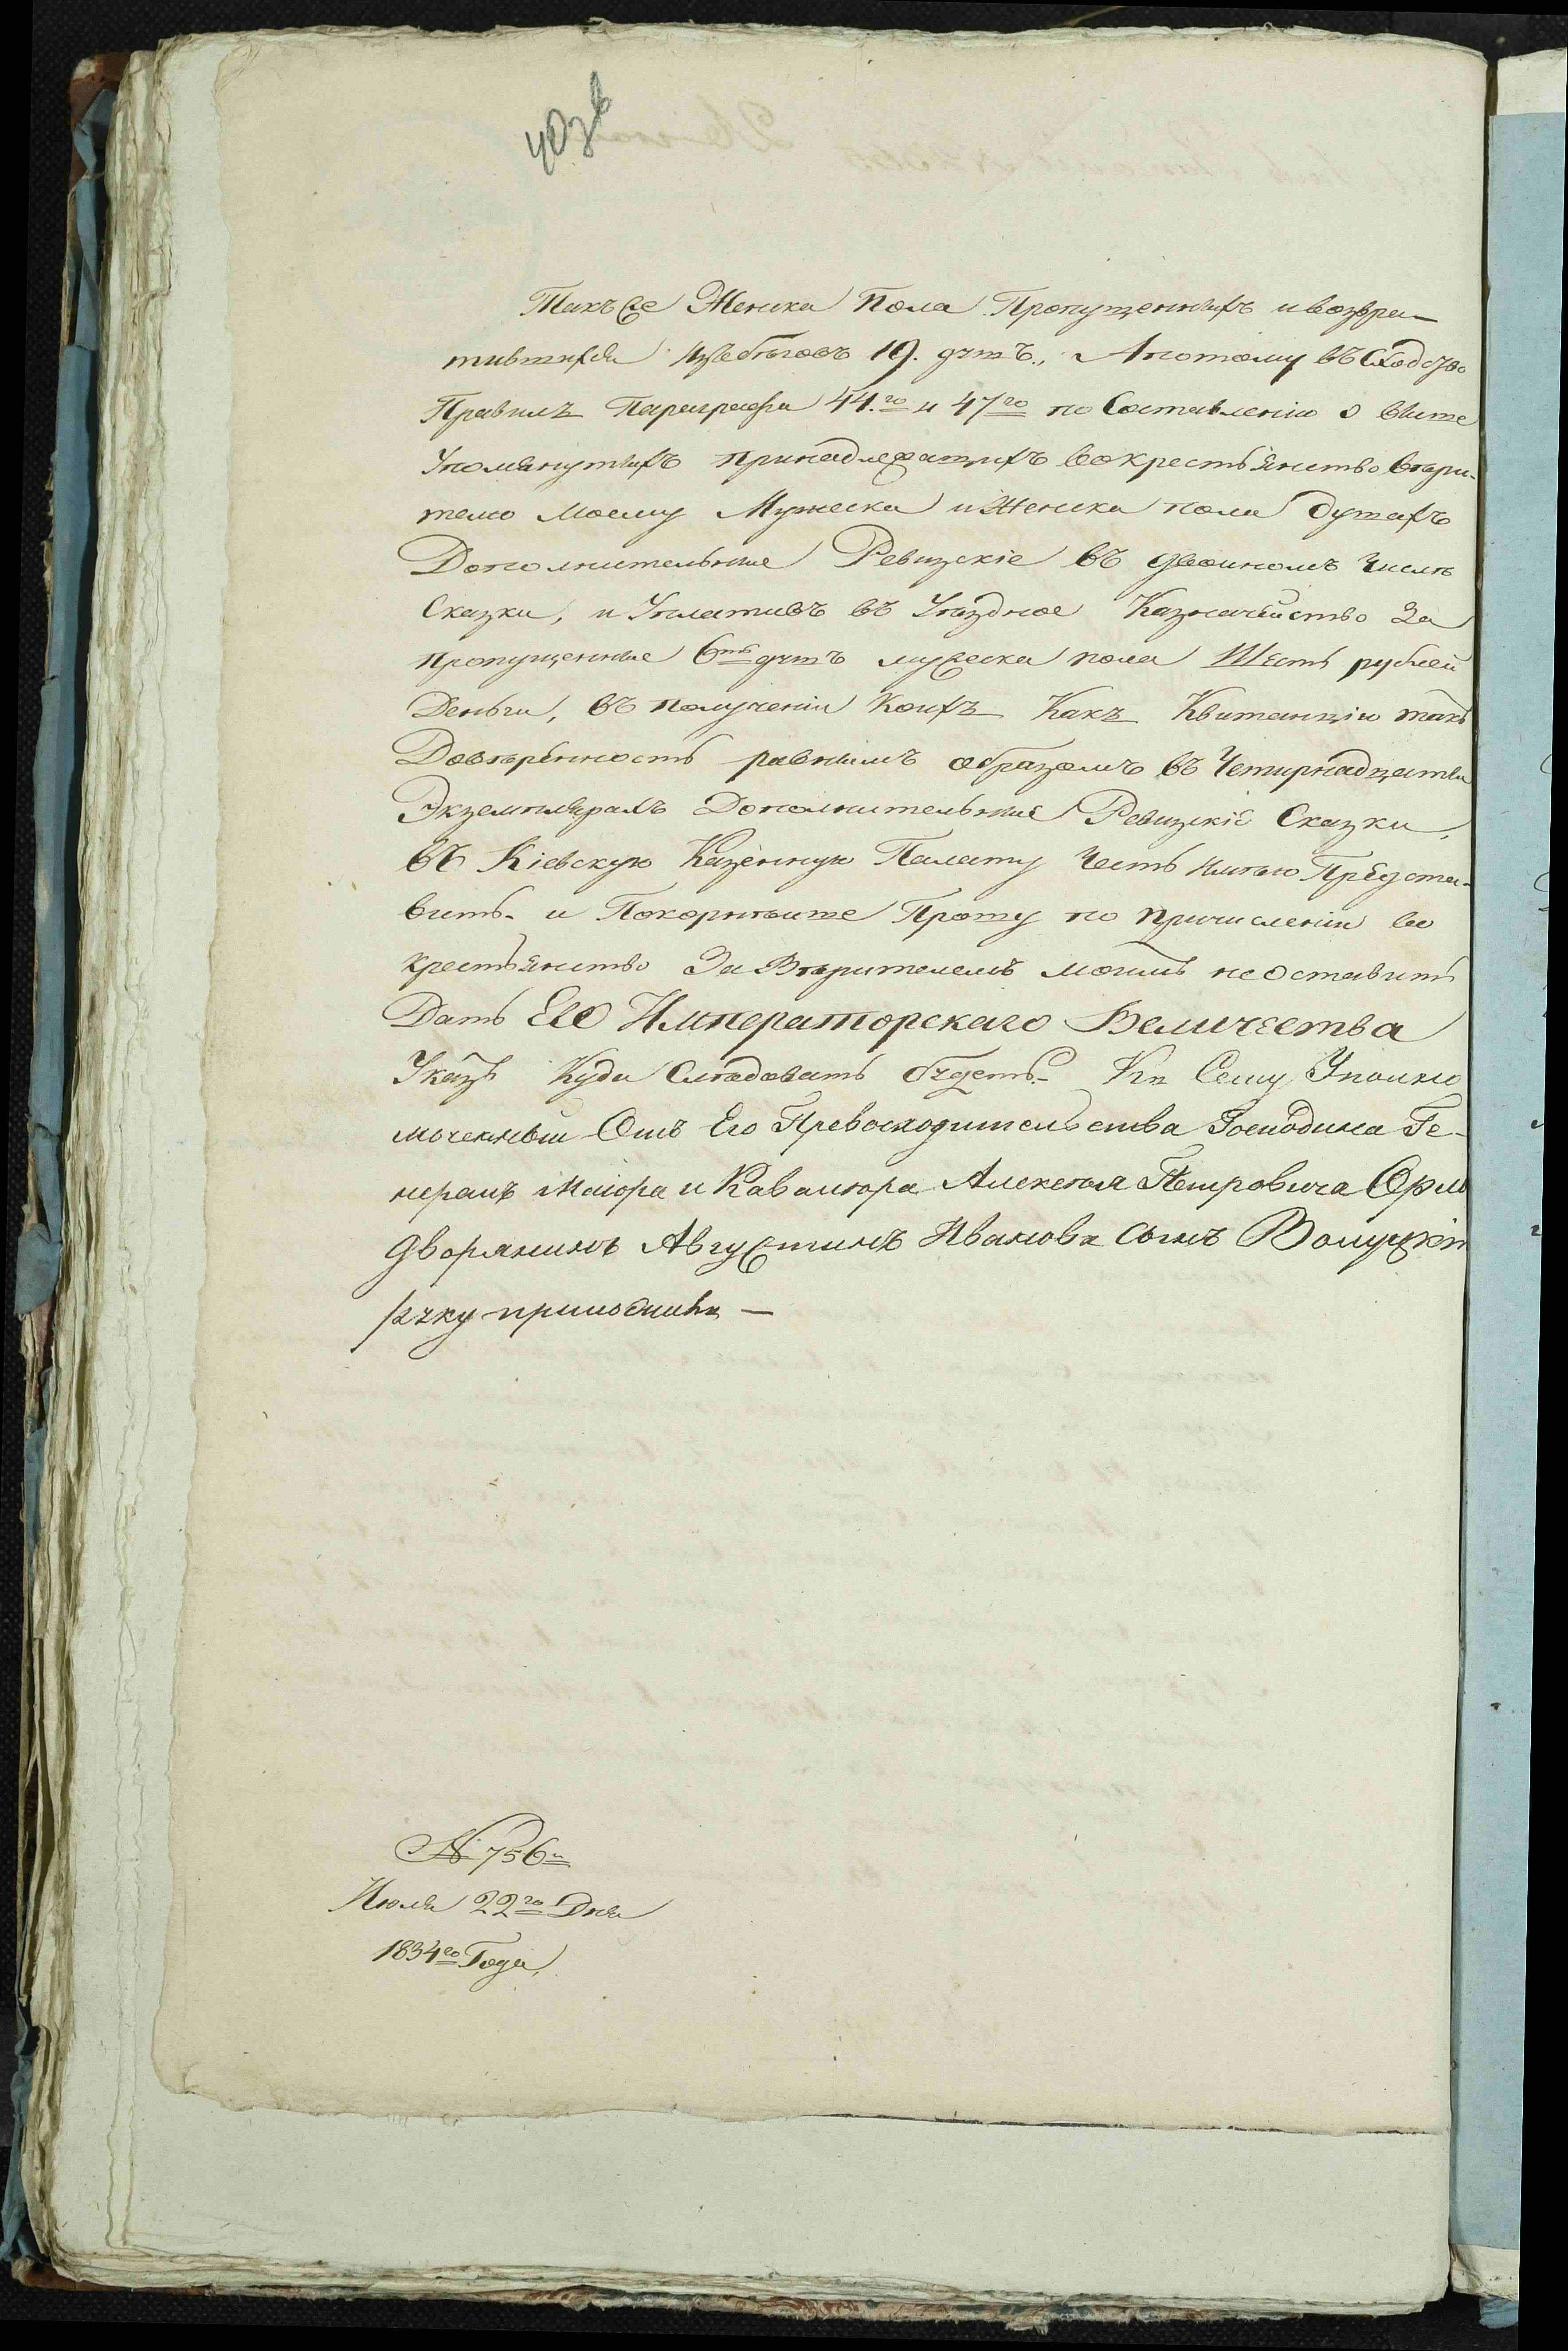 403 в
Такъ Же Женска Пола Пропущенныхъ и возвра-
тившихся Избеговъ 19. душъ., Апотому въ Сходство
Правилъ Параграфа 44.го и 47го по Составленію о више
Упомянутыхъ принадлежащихъ вокрестьянство Вѣри-
телю Моему Мужеска и Женска пола душахъ
Дополнительние Ревизскіе въ двойномъ Числѣ
Сказки, и Уплативъ въ Уѣздное Казначейство За
пропущенние 6ть душъ мужеска пола Шесть рублей
Деньги, въ получении Коихъ Какъ Квитанцію такъ
Довѣренность равнимъ образомъ въ Четирнадцати
Экземплярахъ Дополнительние Ревизскіе Сказки,
въ Кіевскую Казенную Палату Честь Имѣю Предста-
вить. и Покорнѣише Прошу по причисленіи во
крестьянство За Вѣрителемъ моимъ неоставить
Дать Его Императорскаго Величества
Указъ Куда Слѣдовать будетъ. Къ Сему Уполно
моченный Отъ Его Превосходительства Господина Ге-
нералъ Маіора и Кавалѣра Алексѣя Петровича Орло
дворянинъ Августинъ Иванова сынъ
руку приложилъ —
№ 756й
Июля 22го Дня
1834го Года,